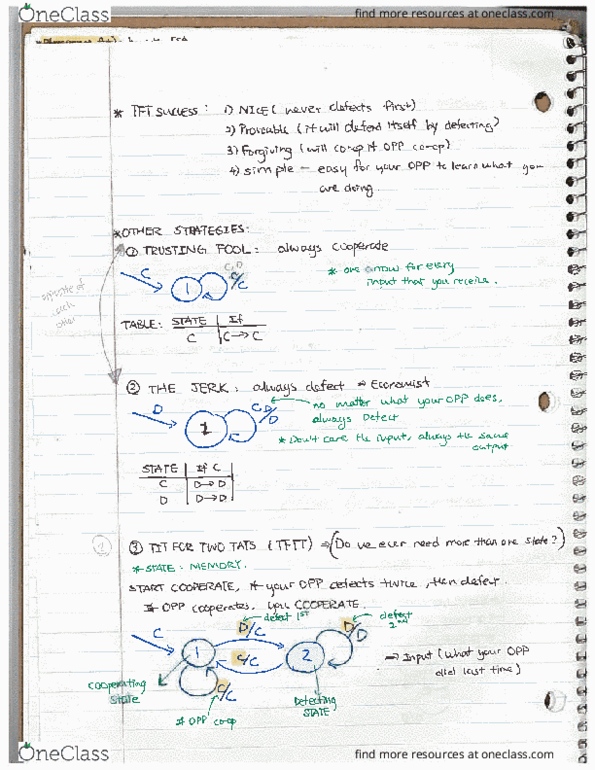 OneClass
find more resources at oneclass.com
* TFT SUCCESS : 1) NICE ( never defects first)
2) Proveable (it will defend itself by defecting)
3) Forgiving (will co-op if OPP co-op)
4) simple — easy for your OPP to learn what you
are doing.
*OTHER STRATEGIES:
① TRUSTING FOOL : always cooperate
C
1
C,D
/C
* one arrow for every
input that you receive.
opposite of
each
other
TABLE: STATE | If
C | C → C
② THE JERK : always defect ⇒ Economist
D
1
C,D
/D
no matter what your OPP does,
always Defect
* Don't care the input, always the same
output
STATE | If C
C | D → D
D | D → D
③ TIT FOR TWO TATS (TFTT) ⇒ (Do we ever need more than one state?)
* STATE : MEMORY.
START COOPERATE, if your OPP defects twice, then defect.
If OPP cooperates, you COOPERATE.
defect 1st
defect
2nd
C
D/C
D/D
1
C/C
2
⇒ Input (what your OPP
did last time)
cooperating
state
C/C
Defecting
STATE
if OPP co-op
OneClass
find more resources at oneclass.com